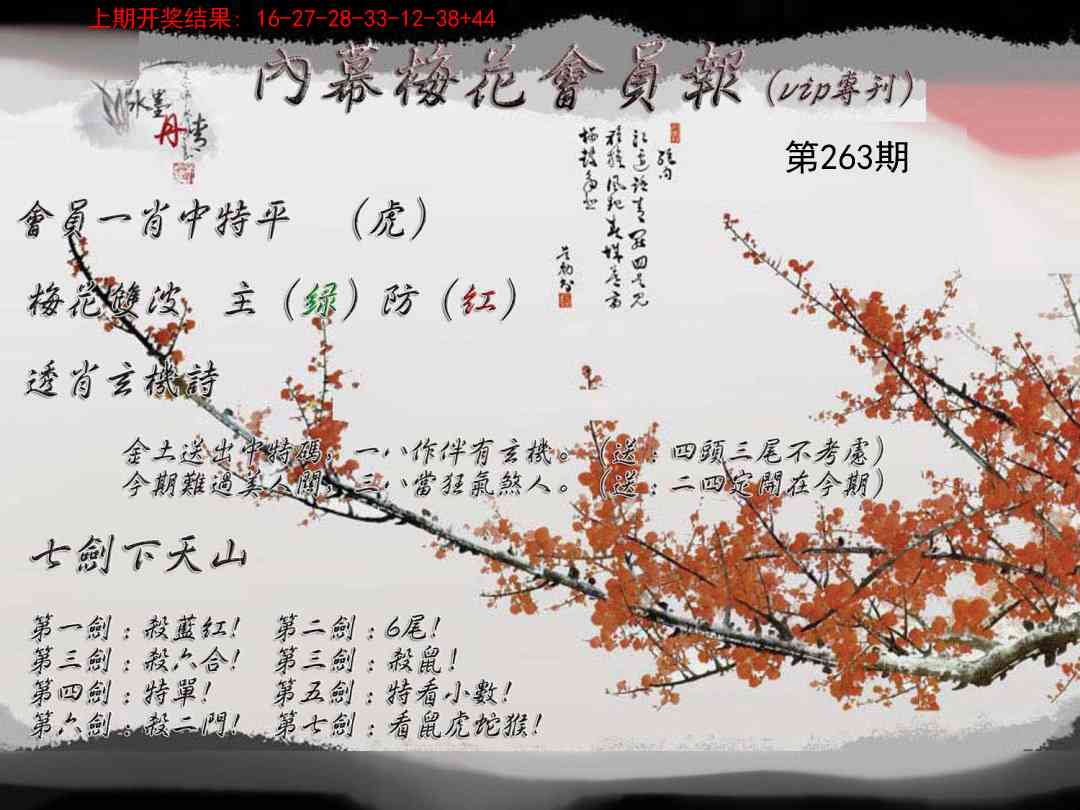 上期开奖结果: 16-27-28-33-12-38+44
內幕梅花會員報(vip專刊)
水墨丹青
第263期
會員一肖中特平 (虎)
梅花雙波 主(绿)防(红)
透肖玄機詩
金土送出中特碼，一八作伴有玄機。(送:四頭三尾不考慮)
今期難過美人關，三八當狂氣煞人。(送:二四定開在今期)
七劍下天山
第一劍:殺藍紅! 第二劍:6尾!
第三劍:殺六合! 第三劍:殺鼠!
第四劍:特單! 第五劍:特看小數!
第六劍:殺二門! 第七劍:看鼠虎蛇猴!